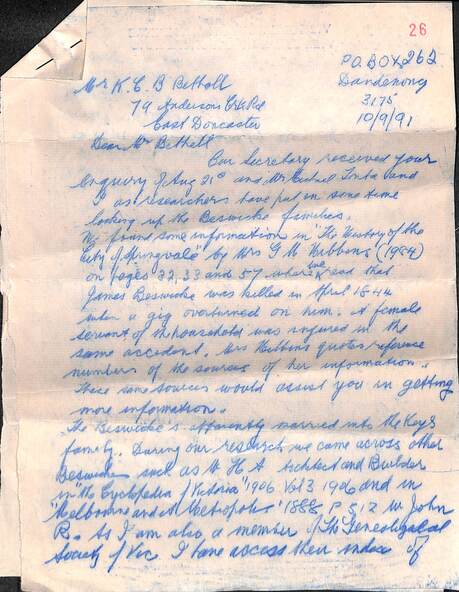 26
P.O. BOX 262
Mr K. C. B Bethell
Dandenong
79 Andersons Crk Rd
3175
East Doncaster
10/9/91
Dear Mr Bethell
Our Secretary received your
enquiry of Aug 21st and Mr and
I as researchers have put in some time
looking up the Beswicke families.
We found some information in "The History of the
City of Springvale" by Mrs G M Hibbins (1984)
on pages 22, 33 and 57 where we read that
James Beswicke was killed in April 1844
when a gig overturned on him. A female
servant of the household was injured in the
same accident. Mrs Hibbins quotes reference
numbers of the sources of her information.
These same sources would assist you in getting
more information.
The Beswicke's apparently married into the Keys
family. During our research we came across other
Beswickes such as H A Architect and Builder
in the Cyclopedia of Victoria" 1906 Vol 3 1906 and in
"Melbourne and its Metropolis" 1888 P 512 W John
R. As I am also a member of The Genealogical
Society of Vic I have access their index of